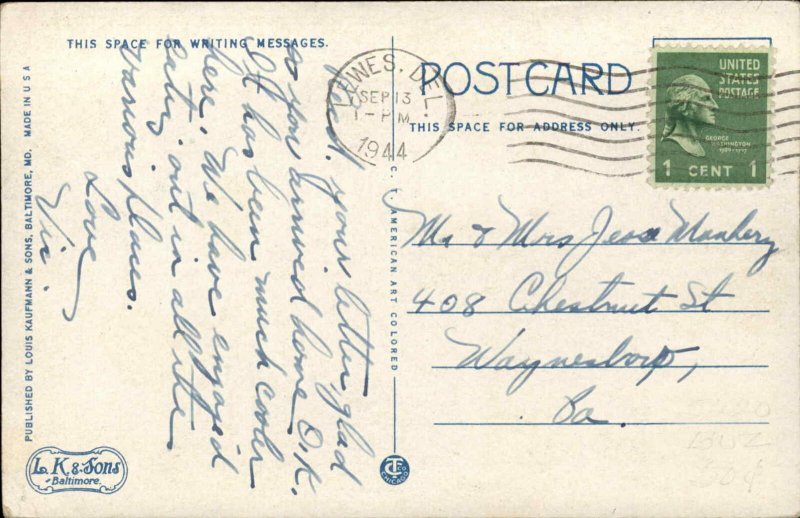 THIS SPACE FOR WRITING MESSAGES.
Rec'd. your letter, glad
so you arrived home O.K.
It has been much cooler
here. We have enjoyed
eating out in all the
various places.
Love
Vic.
POST CARD
THIS SPACE FOR ADDRESS ONLY.
LEWES, DEL.
SEP 13
1-PM
1944
UNITED
STATES
POSTAGE
GEORGE
WASHINGTON
1789-1797
1 CENT 1
Mr & Mrs Jesse
408 Chestnut St
Waynesboro,
Pa.
PUBLISHED BY LOUIS KAUFMANN & SONS, BALTIMORE, MD. MADE IN U S A
C. T. AMERICAN ART COLORED
L. K. & Sons
Baltimore.
CT CO
CHICAGO